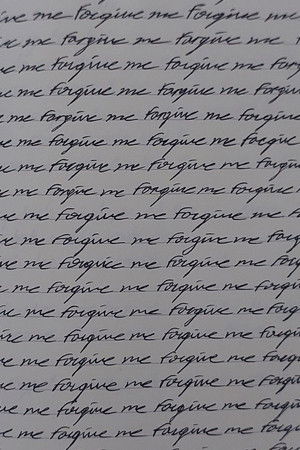 me Forgive me Forgive me
me Forgive me Forgive me
me Forgive me Forgive me
me Forgive me Forgive me Forgive
me Forgive me Forgive me Forgive
me Forgive me Forgive me Forgive
me Forgive me Forgive me Forgive
me Forgive me Forgive me Forgive
me Forgive me Forgive me
me Forgive me Forgive me
me Forgive me Forgive me
me Forgive me Forgive me
me Forgive me Forgive me
me Forgive me Forgive me
me Forgive me Forgive me
me Forgive me Forgive me
me Forgive me Forgive me Forgive
me Forgive me Forgive me Forgive